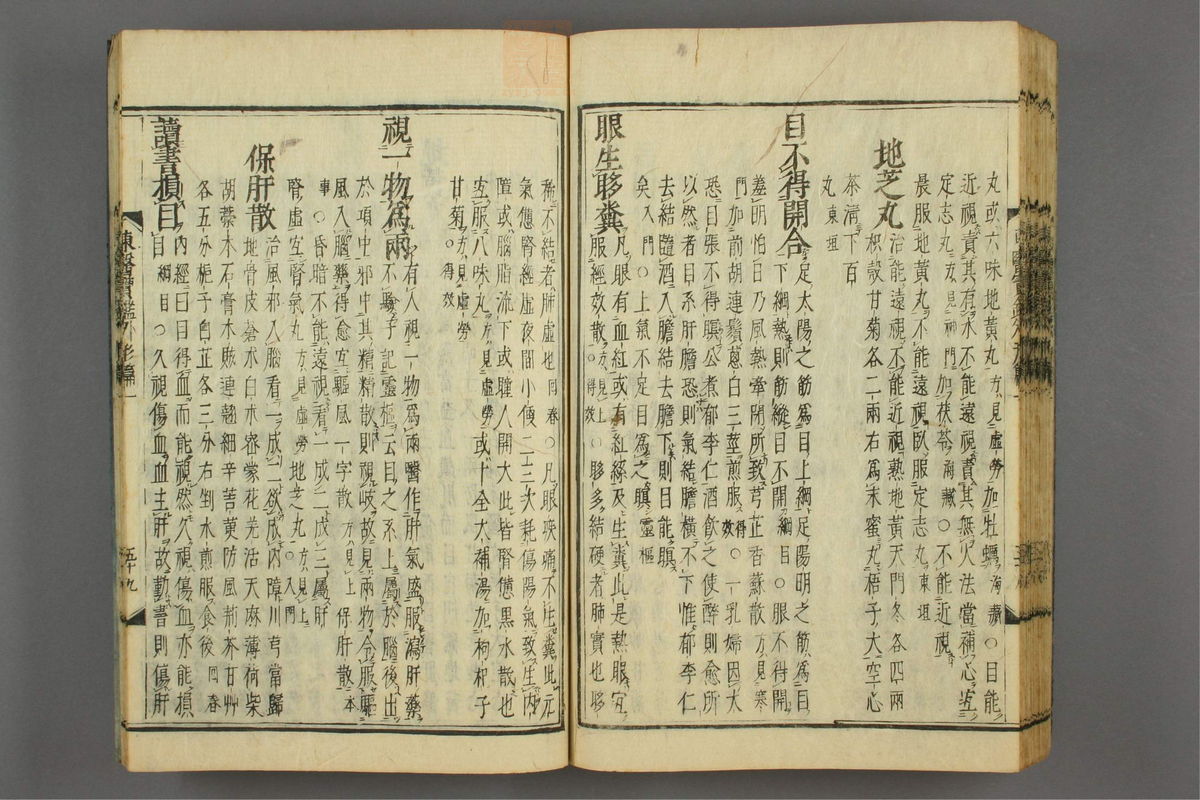 丸或六味地黃丸方見虛勞加牡蠣海藏○目能
近視責其有水不能遠視責其無火法當補心宜
定志丸方見神門加茯苓海藏○不能近視
晨服地黃丸不能遠視臥服定志丸東垣
地芝丸治能遠視不能近視熟地黃天門冬各四兩
枳殼甘菊各二兩右爲末蜜丸梧子大空心
茶淸下百
丸東垣
目不得開合足太陽之筋爲目上綱足陽明之筋爲目
下綱熱則筋縱目不開綱目○眼不得開
羞明怕日乃風熱牽閉所致芎芷香蘇散方見寒
門加前胡連鬚葱白三莖煎服得效○一乳婦因大
恐目張不得瞑公煮郁李仁酒飮之使醉則愈所
以然者目系肝膽恐則氣結膽橫不下惟郁李仁
去結隨酒入膽結去膽下則目能瞑
矣入門○上氣不足目爲之瞑靈樞
眼生眵糞凡眼有血紅或有紅絲及生糞此是熱眼宜
服經效散方見上得效○眵多結硬者肺實也眵
稀不結者肺虛也回春○凡眼疾痛不生糞此元
氣憊腎經虛夜間小便二三次耗傷陽氣致生內
障或腦脂流下或瞳人開大此皆腎憊黑水散也
宜服八味丸方見虛勞或十全大補湯加枸杞子
甘菊方見虛勞○得效
視一物爲兩有人視一物爲兩醫作肝氣盛服瀉肝藥
不驗予記靈樞云目之系上屬於腦後出
於項中邪中其精精散則視岐故見兩物令服驅
風入腦藥得愈宜驅風一字散方見上保肝散本
事○昏暗不能遠視看一成二成三屬肝
腎虛宜腎氣丸方見虛勞地芝丸方見上○入門
保肝散治風邪入腦看一成二欲成內障川芎當歸
地骨皮蒼朮白朮密蒙花羌活天麻薄荷柴
胡藁本石膏木賊連翹細辛苦蕒防風荊芥甘艸
各五分梔子白芷各三分右剉水煎服食後回春
讀書損目內經曰目得血而能視然久視傷血亦能損
目綱目○久視傷血血主肝故勤書則傷肝
東醫寶鑑外形篇一
五十九